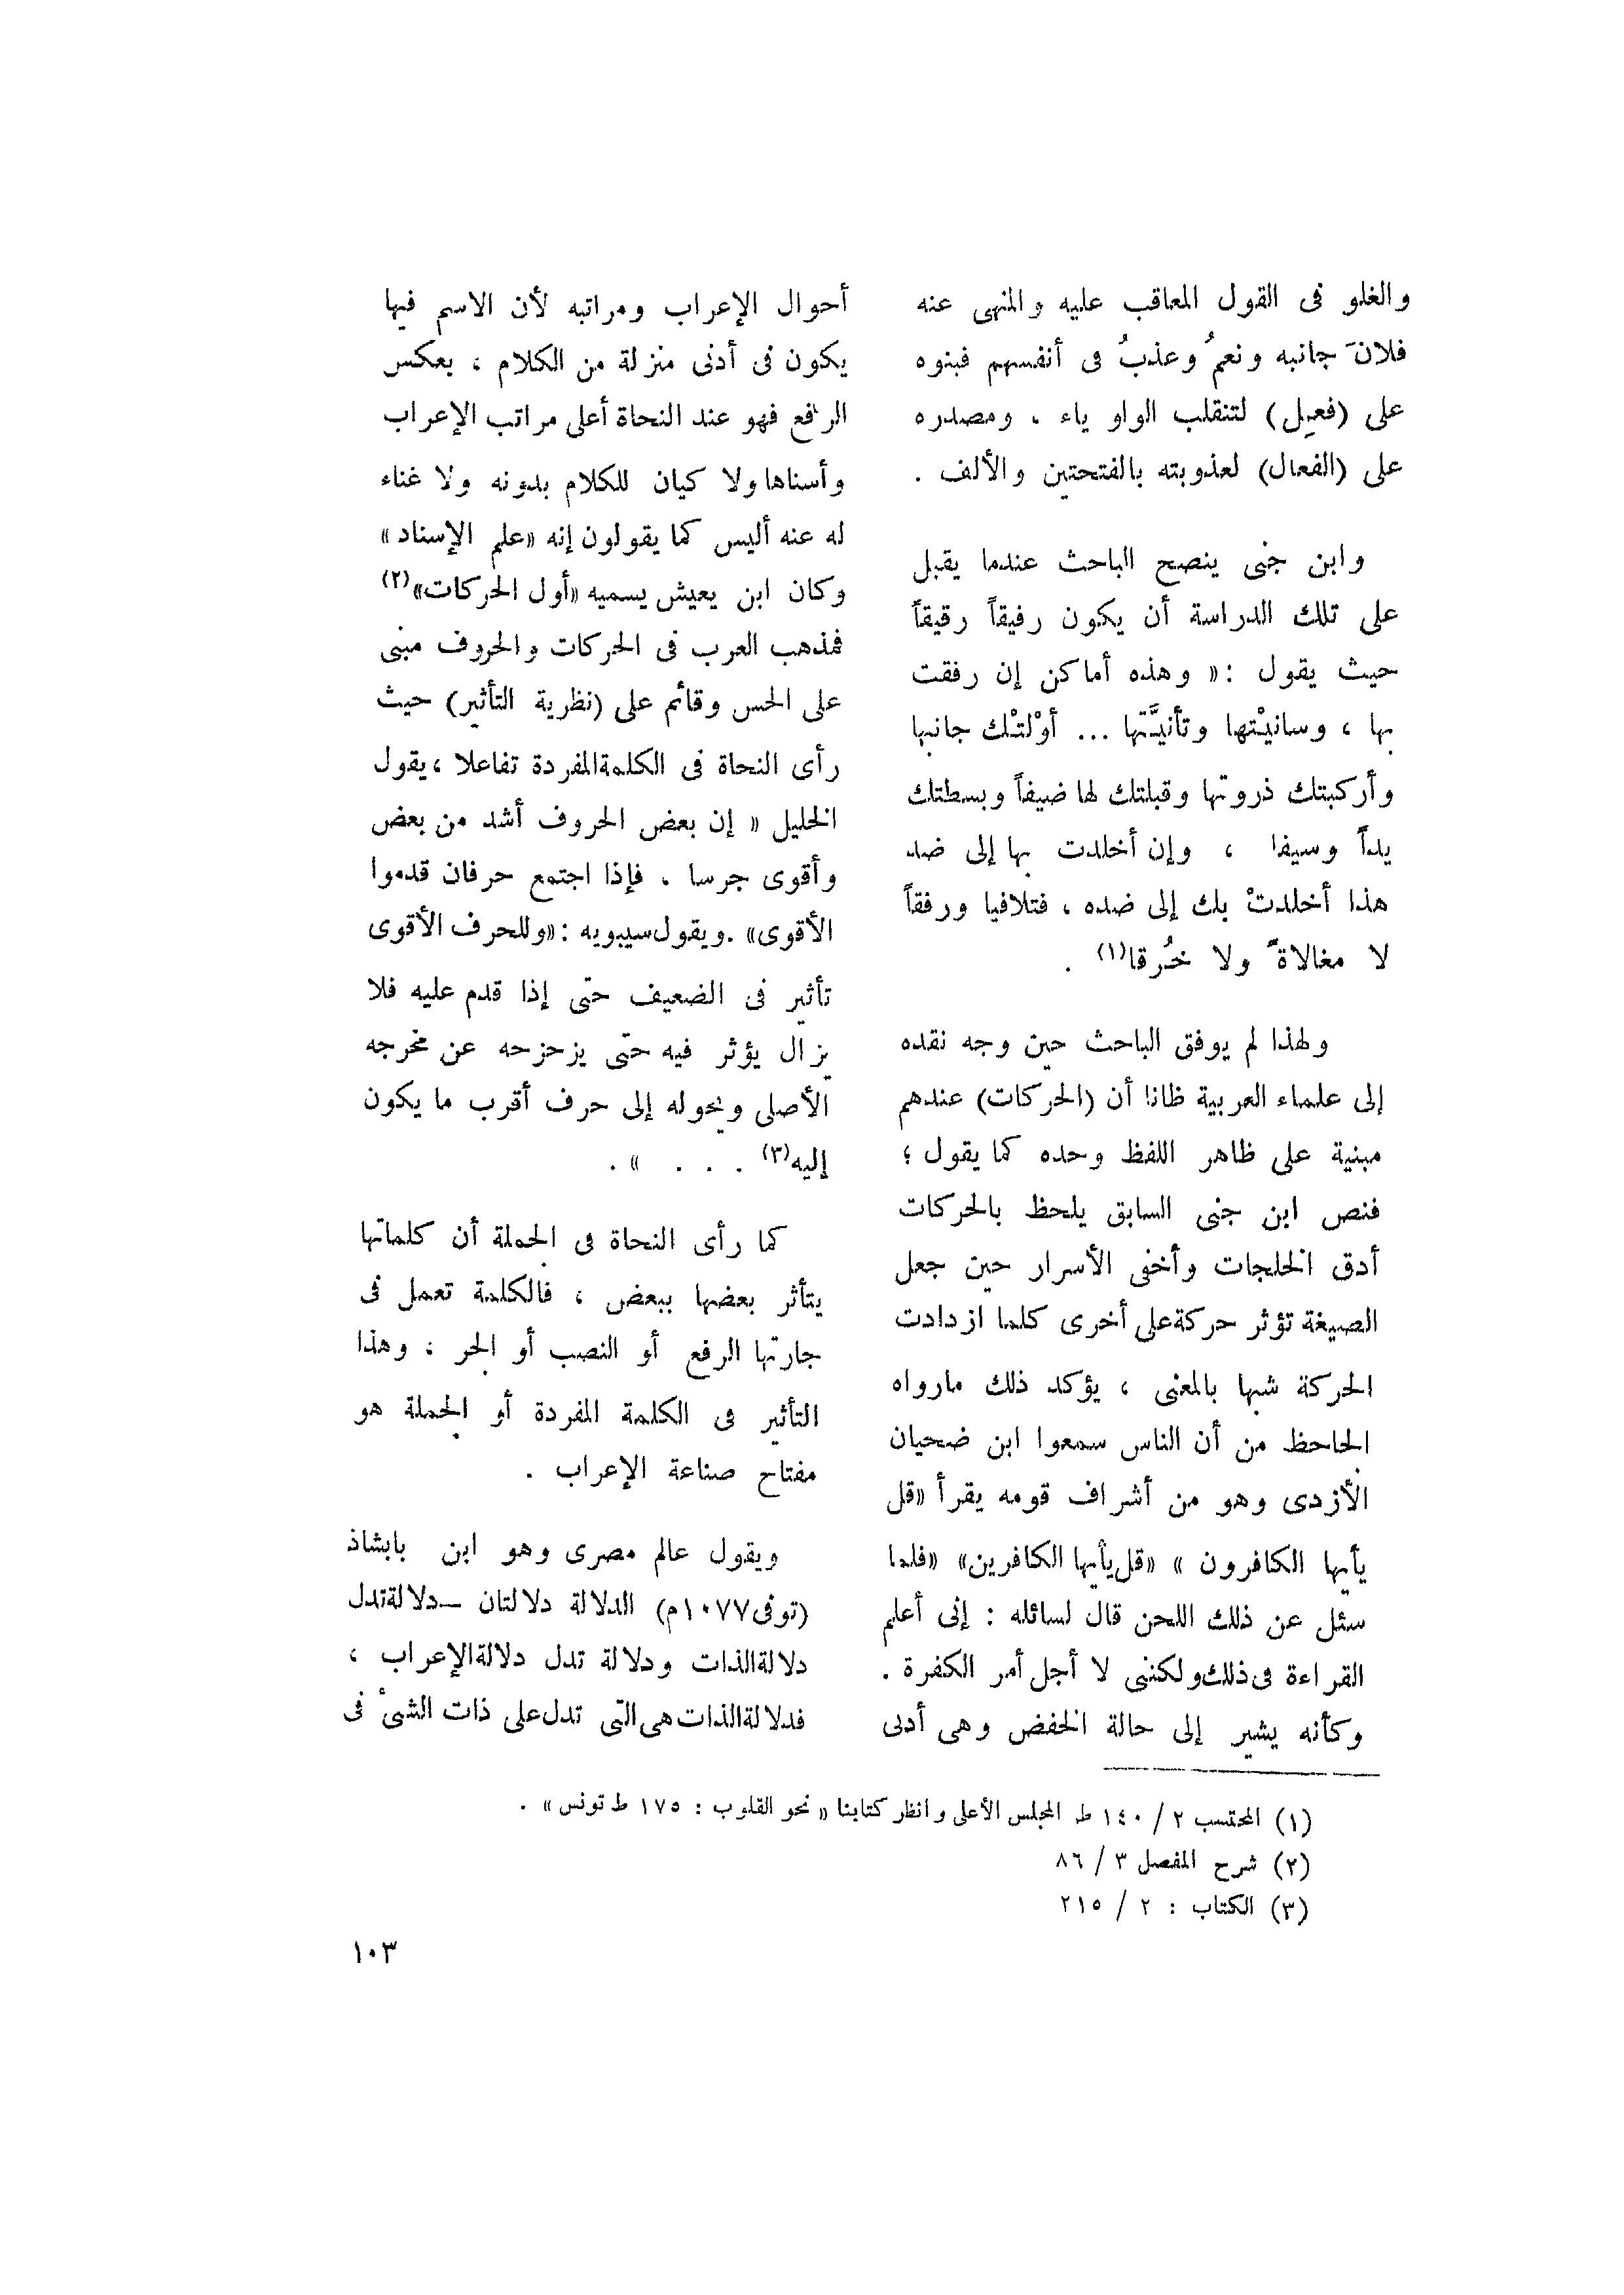 والغلو فى القول المعاقب عليه والمنهى عنه
فلانَ جانبه ونعمُ وعذبُ فى أنفسهم فبنوه
على (فعيل) لتنقلب الواو ياء ، ومصدره
على (الفعال) لعذوبته بالفتحتين والألف .
وابن جنى ينصح الباحث عندما يقبل
على تلك الدراسة أن يكون رفيقاً رقيقاً
حيث يقول : « وهذه أماكن إن رفقت
بها ، وسانيْتها وتأنيَّتها ... أوْلتْك جانبها
وأركبتك ذروتها وقبلتك لها ضيفاً وبسطتك
يداً وسيفا ، وإن أخلدت بها إلى ضد
هذا أخلدتْ بك إلى ضده ، فتلافيا ورفقاً
لا مغالاةً ولا خُرقا(١) .
ولهذا لم يوفق الباحث حين وجه نقده
إلى علماء العربية ظانا أن (الحركات) عندهم
مبنية على ظاهر اللفظ وحده كما يقول ؛
فنص ابن جنى السابق يلحظ بالحركات
أدق الخلجات وأخفى الأسرار حين جعل
الصيغة تؤثر حركة على أخرى كلما ازدادت
الحركة شبها بالمعنى ، يؤكد ذلك مارواه
الجاحظ من أن الناس سمعوا ابن ضحيان
الأزدى وهو من أشراف قومه يقرأ «قل
يأيها الكافرون » «قل يأيها الكافرين» «فلما
سئل عن ذلك اللحن قال لسائله : إنى أعلم
القراءة فى ذلك ولكننى لا أجل أمر الكفرة .
وكأنه يشير إلى حالة الخفض وهى أدنى
أحوال الإعراب ومراتبه لأن الاسم فيها
يكون فى أدنى منزلة من الكلام ، بعكس
الرافع فهو عند النحاة أعلى مراتب الإعراب
وأسناها ولا كيان للكلام بدونه ولا غناء
له عنه أليس كما يقولون إنه «علم الإسناد»
وكان ابن يعيش يسميه «أول الحركات»(٢)
فمذهب العرب فى الحركات والحروف مبنى
على الحس وقائم على (نظرية التأثير) حيث
رأى النحاة فى الكلمة المفردة تفاعلا ، يقول
الخليل « إن بعض الحروف أشد من بعض
وأقوى جرسا . فإذا اجتمع حرفان قدموا
الأقوى» . ويقول سيبويه : «وللحرف الأقوى
تأثير فى الضعيف حتى إذا قدم عليه فلا
يزال يؤثر فيه حتى يزحزحه عن مخرجه
الأصلى ويحوله إلى حرف أقرب ما يكون
إليه(٣) . . . » .
كما رأى النحاة فى الجملة أن كلماتها
يتأثر بعضها ببعض ، فالكلمة تعمل فى
جارتها الرفع أو النصب أو الجر ، وهذا
التأثير فى الكلمة المفردة أو الجملة هو
مفتاح صناعة الإعراب .
ويقول عالم مصرى وهو ابن بابشاذ
(توفى ١٠٧٧م) الدلالة دلالتان – دلالة تدل
دلالة الذات ودلالة تدل دلالة الإعراب ،
فدلالة الذات هى التى تدل على ذات الشئ فى
(١) المحتسب ٢ / ١٤٠ ط المجلس الأعلى وانظر كتابنا « نحو القلوب : ١٧٥ ط تونس » .
(٢) شرح المفصل ٣ / ٨٦
(٣) الكتاب : ٢ / ٢١٥
١٠٣